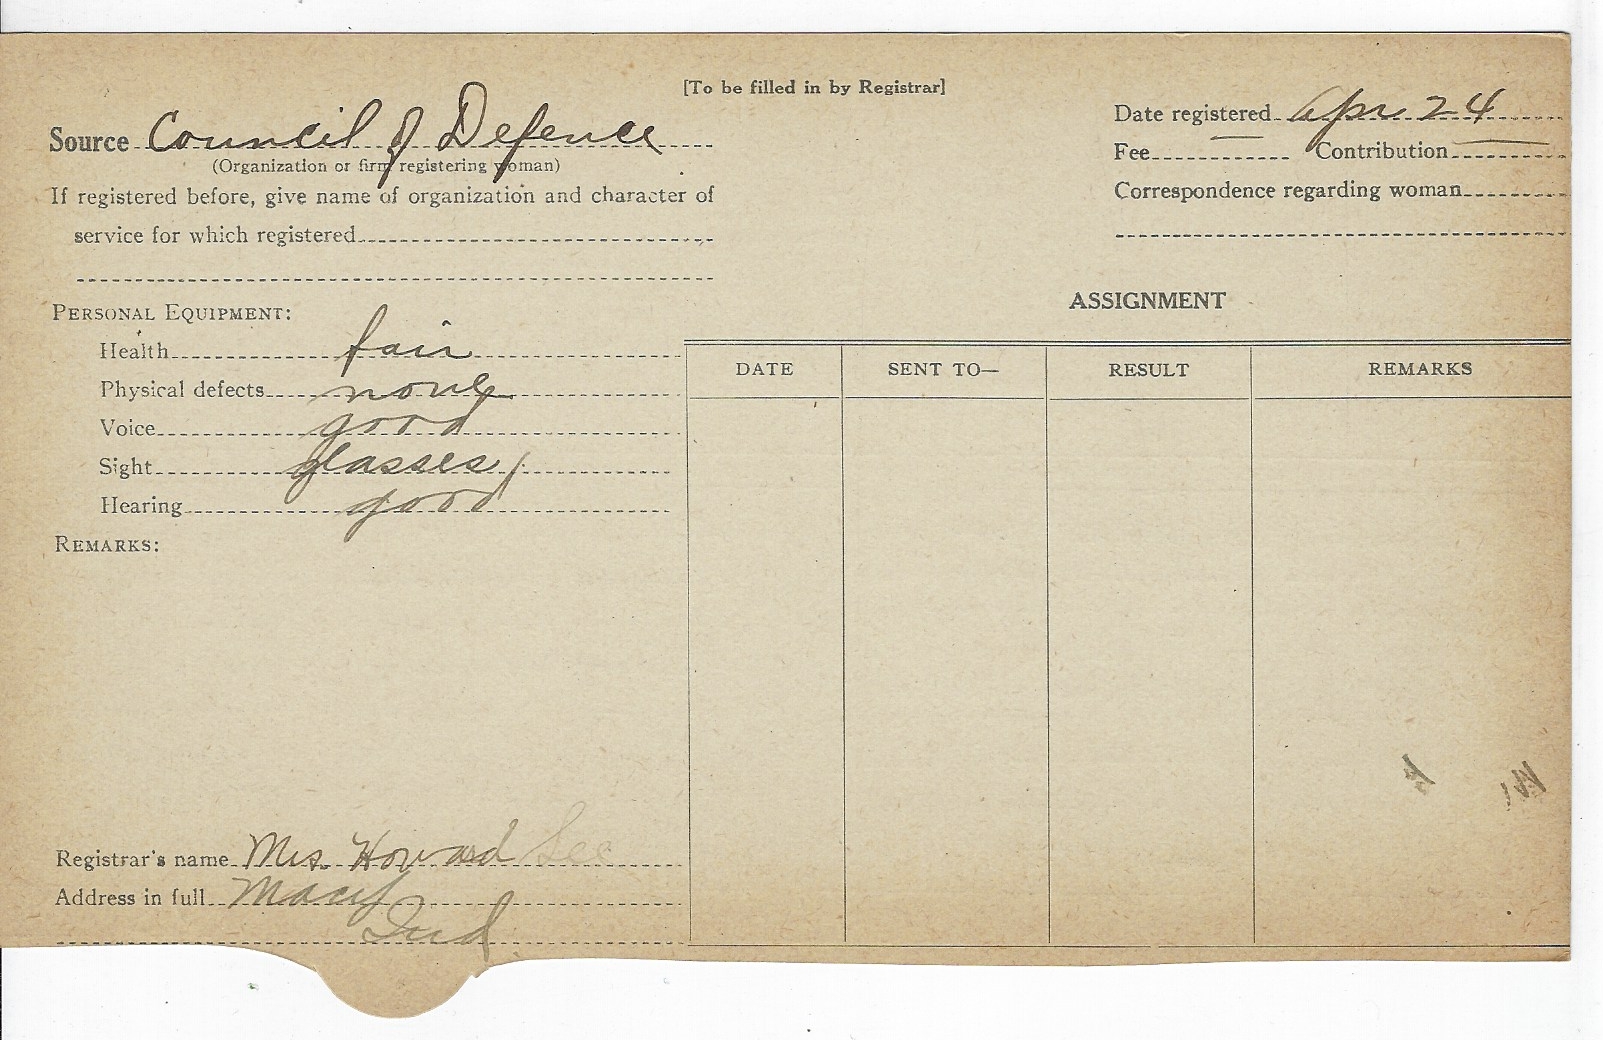 [To be filled in by Registrar]
Source Council of Defence
(Organization or firm registering woman)
If registered before, give name of organization and character of
service for which registered
Date registered Apr 24
Fee — Contribution —
Correspondence regarding woman
PERSONAL EQUIPMENT:
Health fair
Physical defects none
Voice good
Sight glasses
Hearing good
REMARKS:
ASSIGNMENT
DATE SENT TO— RESULT REMARKS
Registrar's name Mrs. Howard See
Address in full Macy
Ind